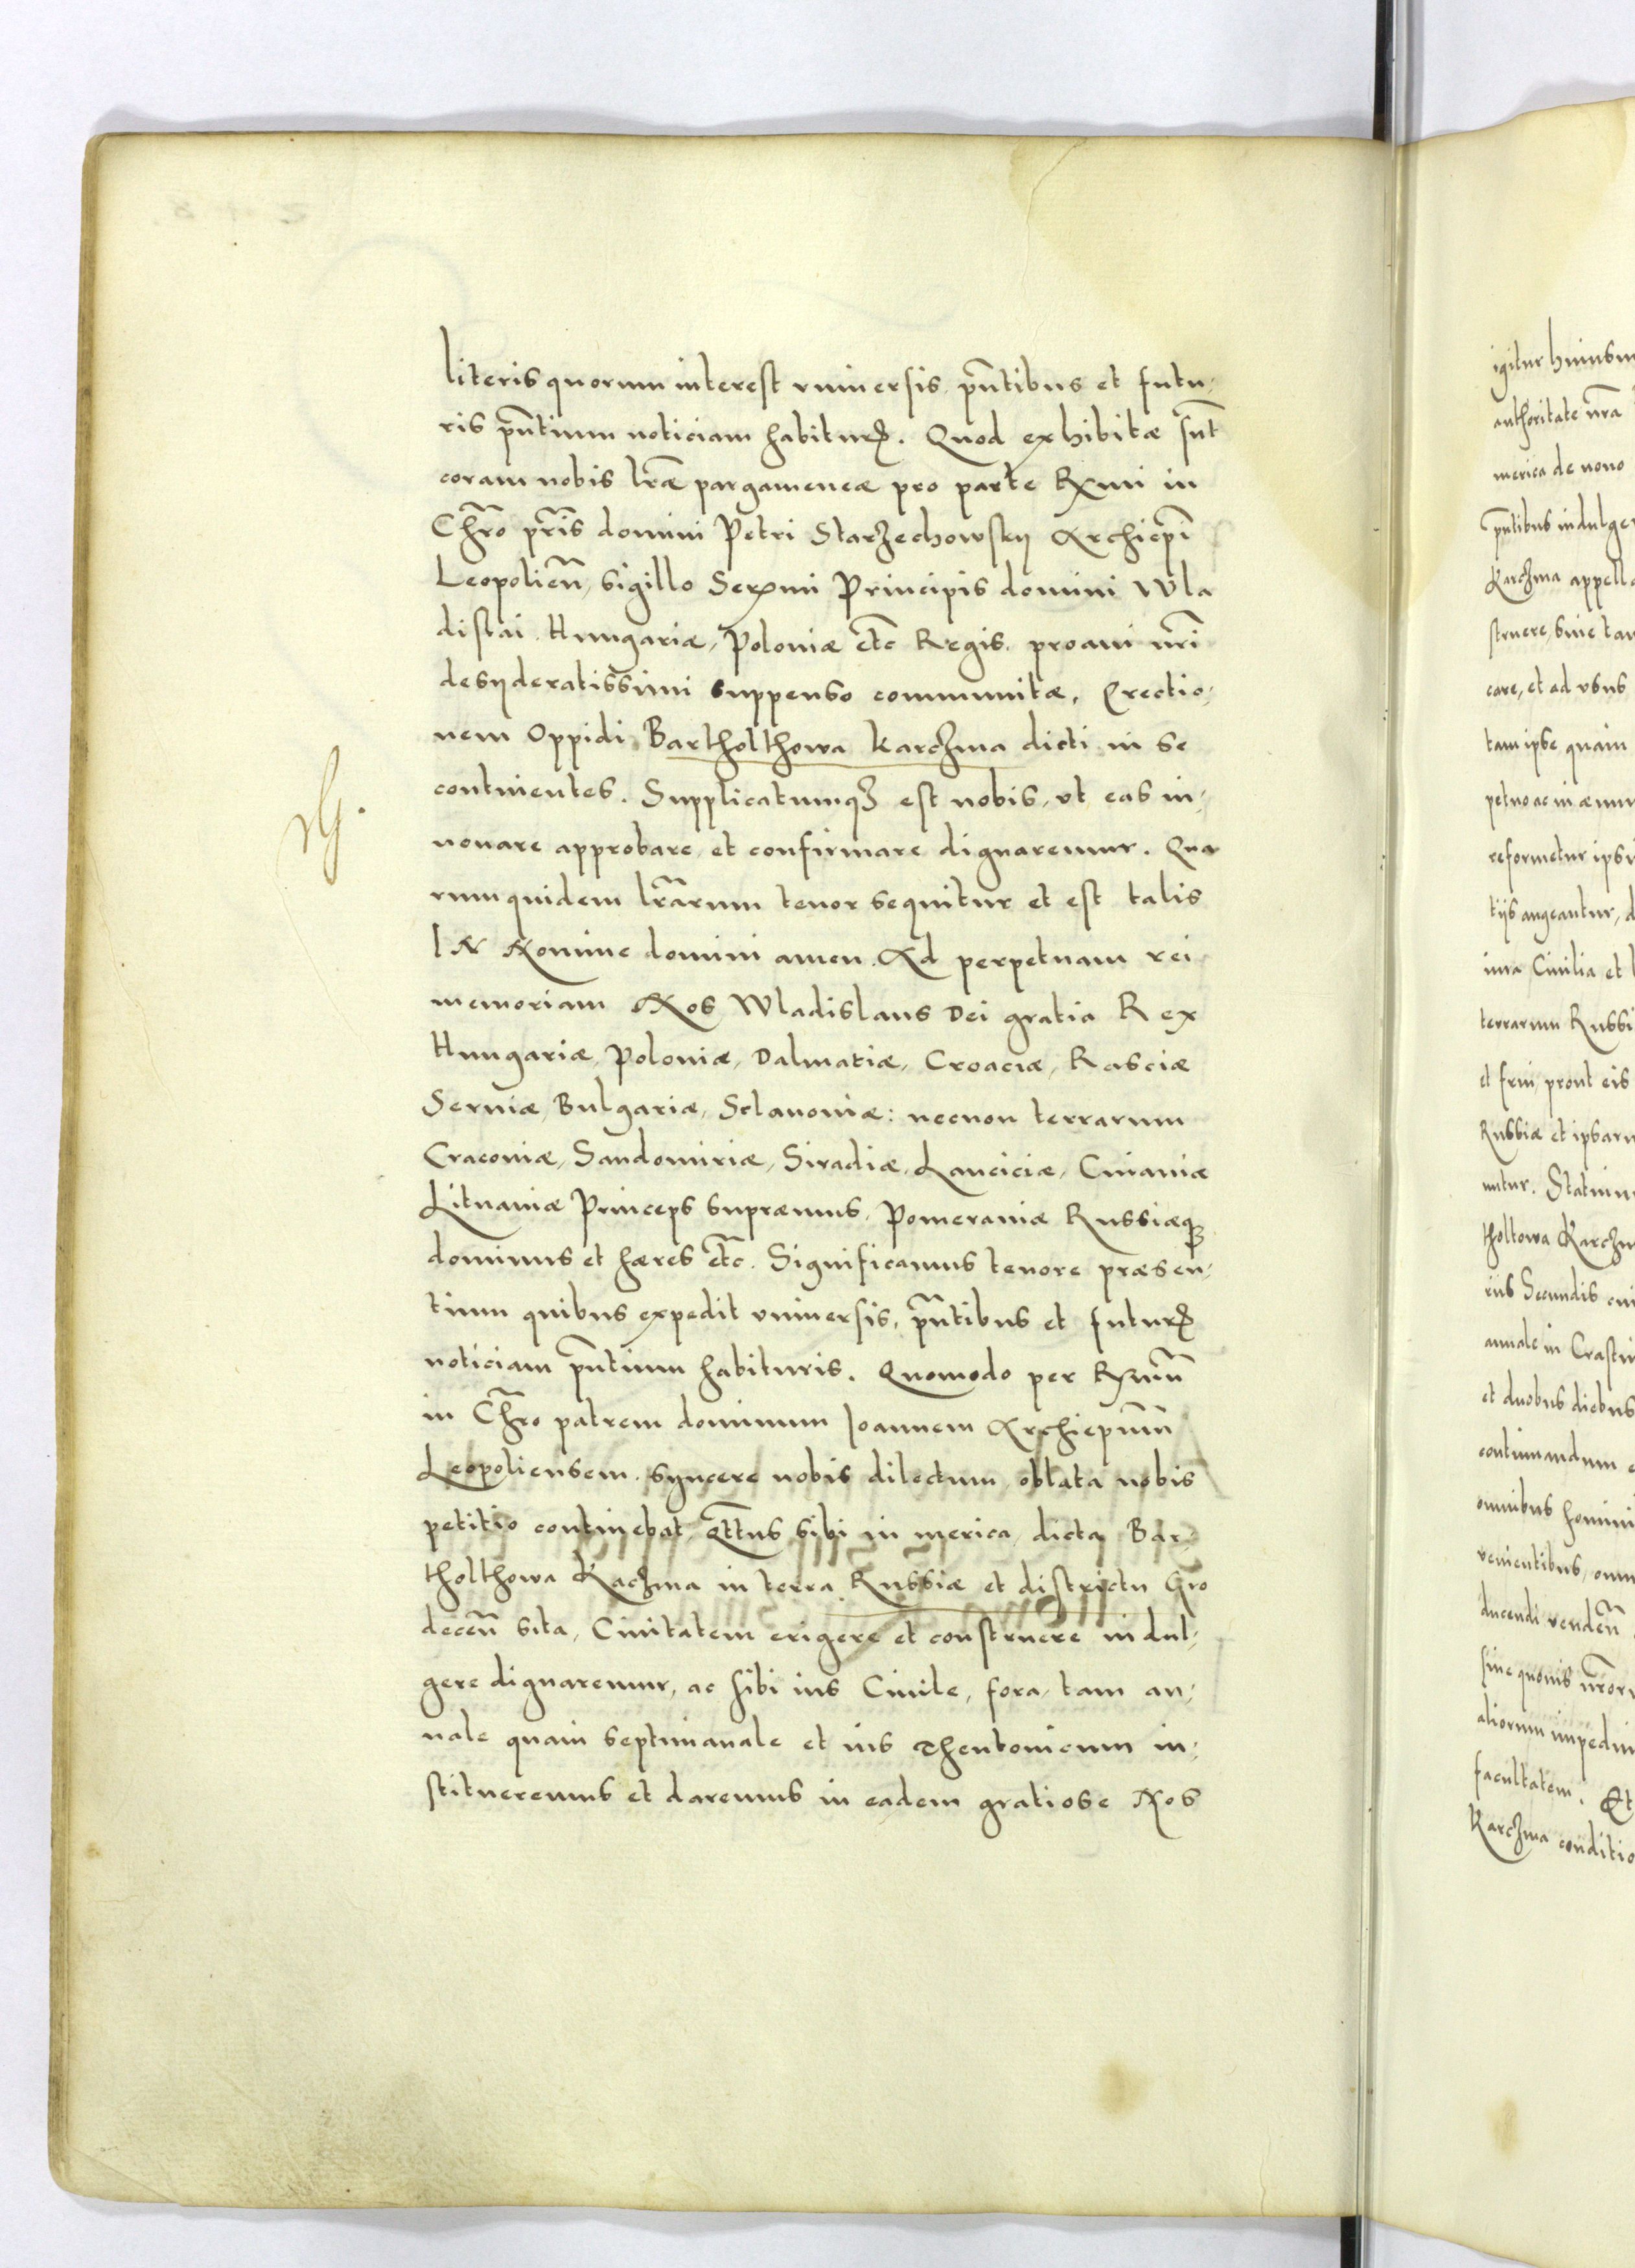 literis quorum interest vniuersis p̃ntibus et futu-
ris p̃ntium noticiam habiturꝭ. Quod exhibitæ sũt
coram nobis lr̃æ pargameneæ pro parte Rx̃mi in
Chr̃o pr̃is domini Petri Starzechowsky Archiep̃i
Leopolieñ, sigillo Serx̃mi Principis domini Wla
dislai Hungariæ, Poloniæ etc̃ Regis, proaui nr̃i
desyderatissimi suppenso communitæ, Erectio-
nem Oppidi Bartholthowa karczma dicti in se
continentes. Supplicatumqꝫ est nobis, vt eas in-
nouare approbare et confirmare dignaremur. Qua
rum quidem lr̃arum tenor sequitur et est talis
IN Nomine domini amen. Ad perpetuam rei
memoriam Nos Wladislaus Dei gratia Rex
Hungariæ, Poloniæ, Dalmatiæ, Croaciæ, Rasciæ
Seruiæ, Bulgariæ, Sclauoniæ: necnon terrarum
Cracouiæ, Sandomiriæ, Siradiæ, Lanciciæ, Cuiauiæ
Lituaniæ Princeps supræmus, Pomeraniæ Russiæqꝫ
dominus et hæres etc̃. Significamus tenore præsen-
tium quibus expedit vniuersis, p̃ntibus et futurꝭ
noticiam p̃ntium habituris. Quomodo per Rx̃mũ
in Chr̃o patrem dominum Joannem Archiep̃um̃
Leopoliensem syncere nobis dilectum oblata nobis
petitio continebat, q̃t̃nus sibi in merica dicta Bar-
tholthowa Kaczma in terra Russiæ et districtu Gro
deceñ sita, Ciuitatem erigere et construere indul-
gere dignaremur, ac sibi ius Ciuile, fora, tam an-
nale quam septimanale et ius Theutonicum in-
stitueremus et daremus in eadem gratiose Nos
igitur huiusm
authoritate nr̃a
merica de nouo
p̃ntibus indulge
Karczma appella
struere, siue tan
care, et ad vsus
tam ipse quam
petuo ac in æuu
reformetur ipsi
tijs augeantur, d
iura Ciuilia et l
terrarum Russi
et frui, prout eis
Russiæ et ipsaru
untur. Statuim
tholtowa Karczm
riis Secundis
annale in Crasti
et duobus diebus
continuandum
omnibus homini
venientibus, omn
ducendi vendeñ
siue quouis nr̃oru
aliorum impedim
facultatem. Et
Karczma conditio